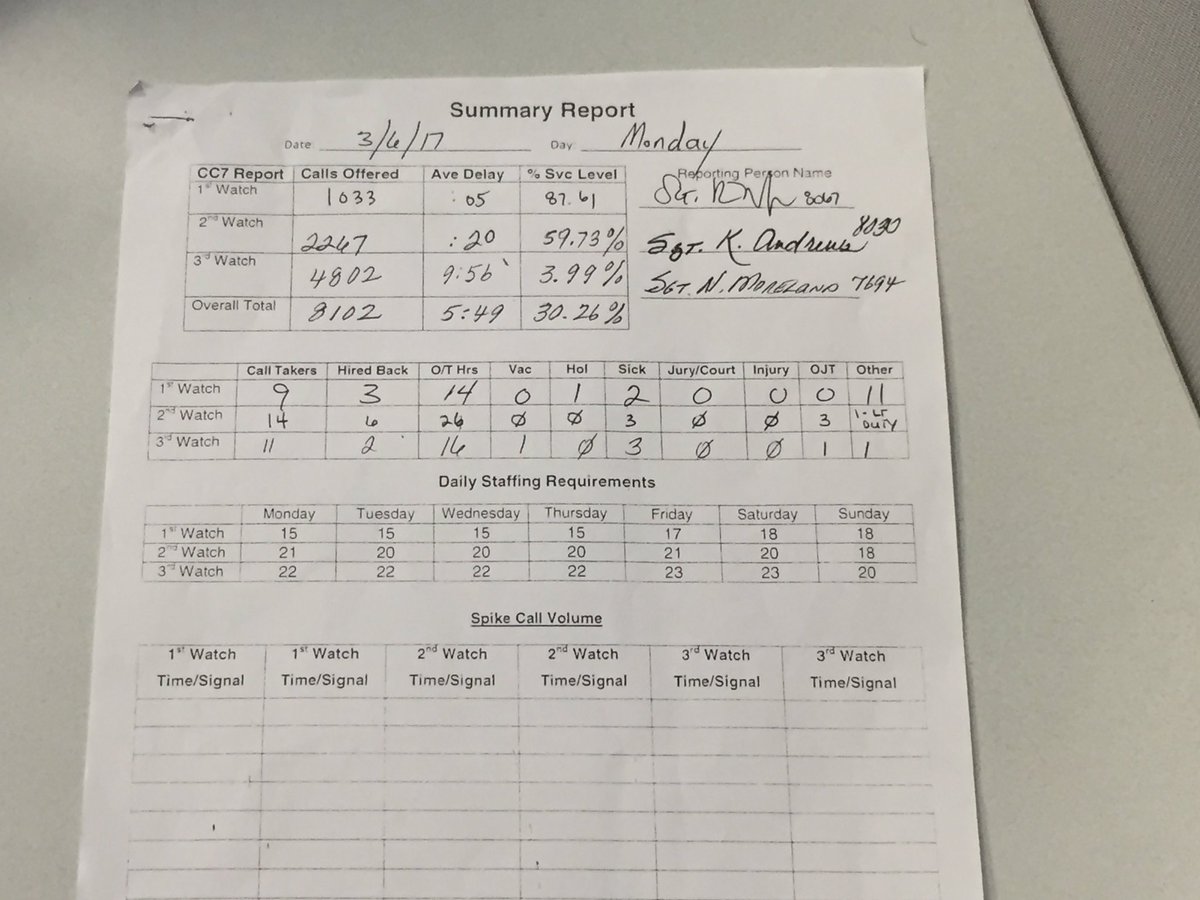 Summary Report
Date 3/6/17 Day Monday
CC7 Report Calls Offered Ave Delay % Svc Level Reporting Person Name
1st Watch 1033 :05 87.61 Sgt. 8067
2nd Watch 2267 :20 59.73% Sgt. K. Andrews 8030
3rd Watch 4802 9:56 3.99% SGT. N. MORELAND 7694
Overall Total 8102 5:49 30.26%
Call Takers Hired Back O/T Hrs Vac Hol Sick Jury/Court Injury OJT Other
1st Watch 9 3 14 0 1 2 0 0 0 11
2nd Watch 14 6 26 Ø Ø 3 Ø Ø 3 1-LT DUTY
3rd Watch 11 2 16 1 Ø 3 Ø Ø 1 1
Daily Staffing Requirements
Monday Tuesday Wednesday Thursday Friday Saturday Sunday
1st Watch 15 15 15 15 17 18 18
2nd Watch 21 20 20 20 21 20 18
3rd Watch 22 22 22 22 23 23 20
Spike Call Volume
1st Watch 1st Watch 2nd Watch 2nd Watch 3rd Watch 3rd Watch
Time/Signal Time/Signal Time/Signal Time/Signal Time/Signal Time/Signal